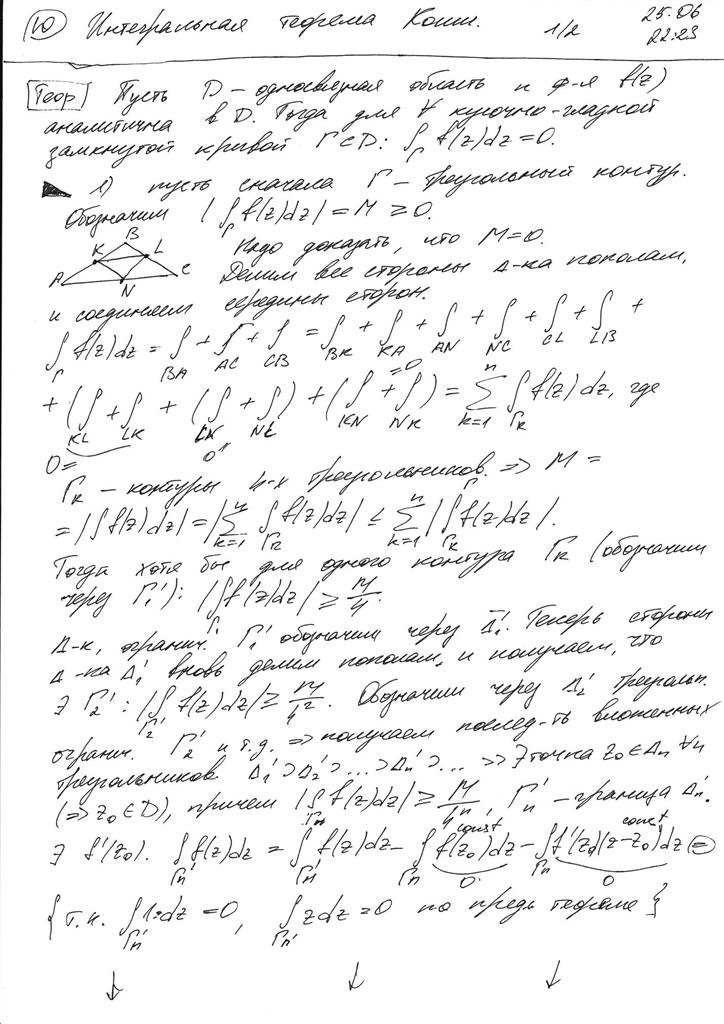 10 Интегральная теорема Коши. 1/2 25.06 22:23
Теор Пусть D – односвязная область и ф-я f(z)
аналитична в D. Тогда для ∀ кусочно-гладкой
замкнутой кривой Γ⊂D: ∫_Γ f(z)dz=0.
1) пусть сначала Γ – треугольный контур.
Обозначим |∫_Γ f(z)dz| = M ≥ 0.
Надо доказать, что M=0.
A K B L C N
Делим все стороны Δ-ка пополам,
и соединяем середины сторон.
∫_Γ f(z)dz = ∫_BA + ∫_AC + ∫_CB = ∫_BK + ∫_KA + ∫_AN + ∫_NC + ∫_CL + ∫_LB +
+ (∫_KL + ∫_LK) + (∫_LN + ∫_NL) + (∫_KN + ∫_NK) = Σ_{k=1}^{n} ∫_{Γ_k} f(z)dz, где
0= 0" =0
Γ_k – контуры 4-х треугольников. ⇒ M =
= |∫_Γ f(z)dz| = |Σ_{k=1}^{4} ∫_{Γ_k} f(z)dz| ≤ Σ_{k=1}^{n} |∫_{Γ_k} f(z)dz|.
Тогда хотя бы для одного контура Γ_k (обозначим
через Γ_1'): |∫ f(z)dz| ≥ M/4.
Δ-к, огранич. Γ_1' обозначим через Δ_1'. Теперь стороны
Δ-ка Δ_1' вновь делим пополам, и получаем, что
∃ Γ_2' : |∫_{Γ_2'} f(z)dz| ≥ M/4². Обозначим через Δ_2' треугольн.
огранич. Γ_2' и т.д. ⇒ получаем послед-ть вложенных
треугольников Δ_1' ⊃ Δ_2' ⊃ ... ⊃ Δ_n' ⊃ ... ⇒ ∃ точка z_0 ∈ Δ_n ∀n
(⇒ z_0 ∈ D), причем |∫_{Γ_n} f(z)dz| ≥ M/4^n, Γ_n' – граница Δ_n'.
∃ f'(z_0). ∫_{Γ_n'} f(z)dz = ∫_{Γ_n'} f(z)dz – ∫_{Γ_n} f(z_0)dz – ∫_{Γ_n} f'(z_0)(z-z_0)dz =
const const
0 0
{ т.к. ∫_{Γ_n'} 1·dz = 0, ∫_{Γ_n'} zdz = 0 по пред. теореме }
↓ ↓ ↓